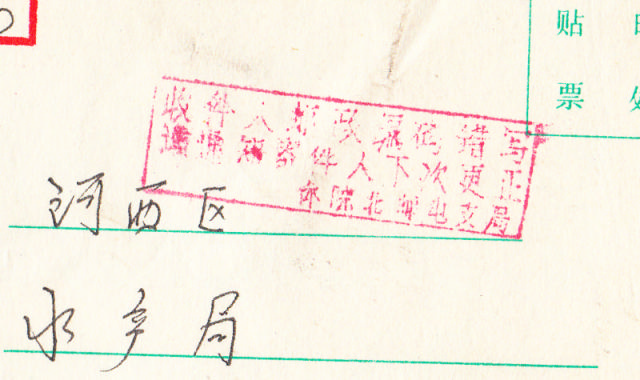 贴
票
收件人邮政编码错写
请通知寄件人下次更正
北邮电支局
河西区
水产局